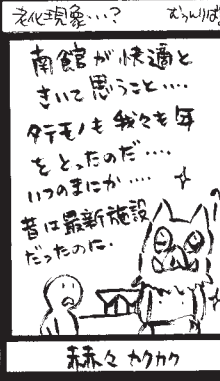 老化現象…?
むらんりぱ
南館が快適と
きいて思うこと‥‥
タテモノも我々も年
をとったのだ‥‥
いつのまにか‥‥
昔は最新施設
だったのに.
赫々 カクカク